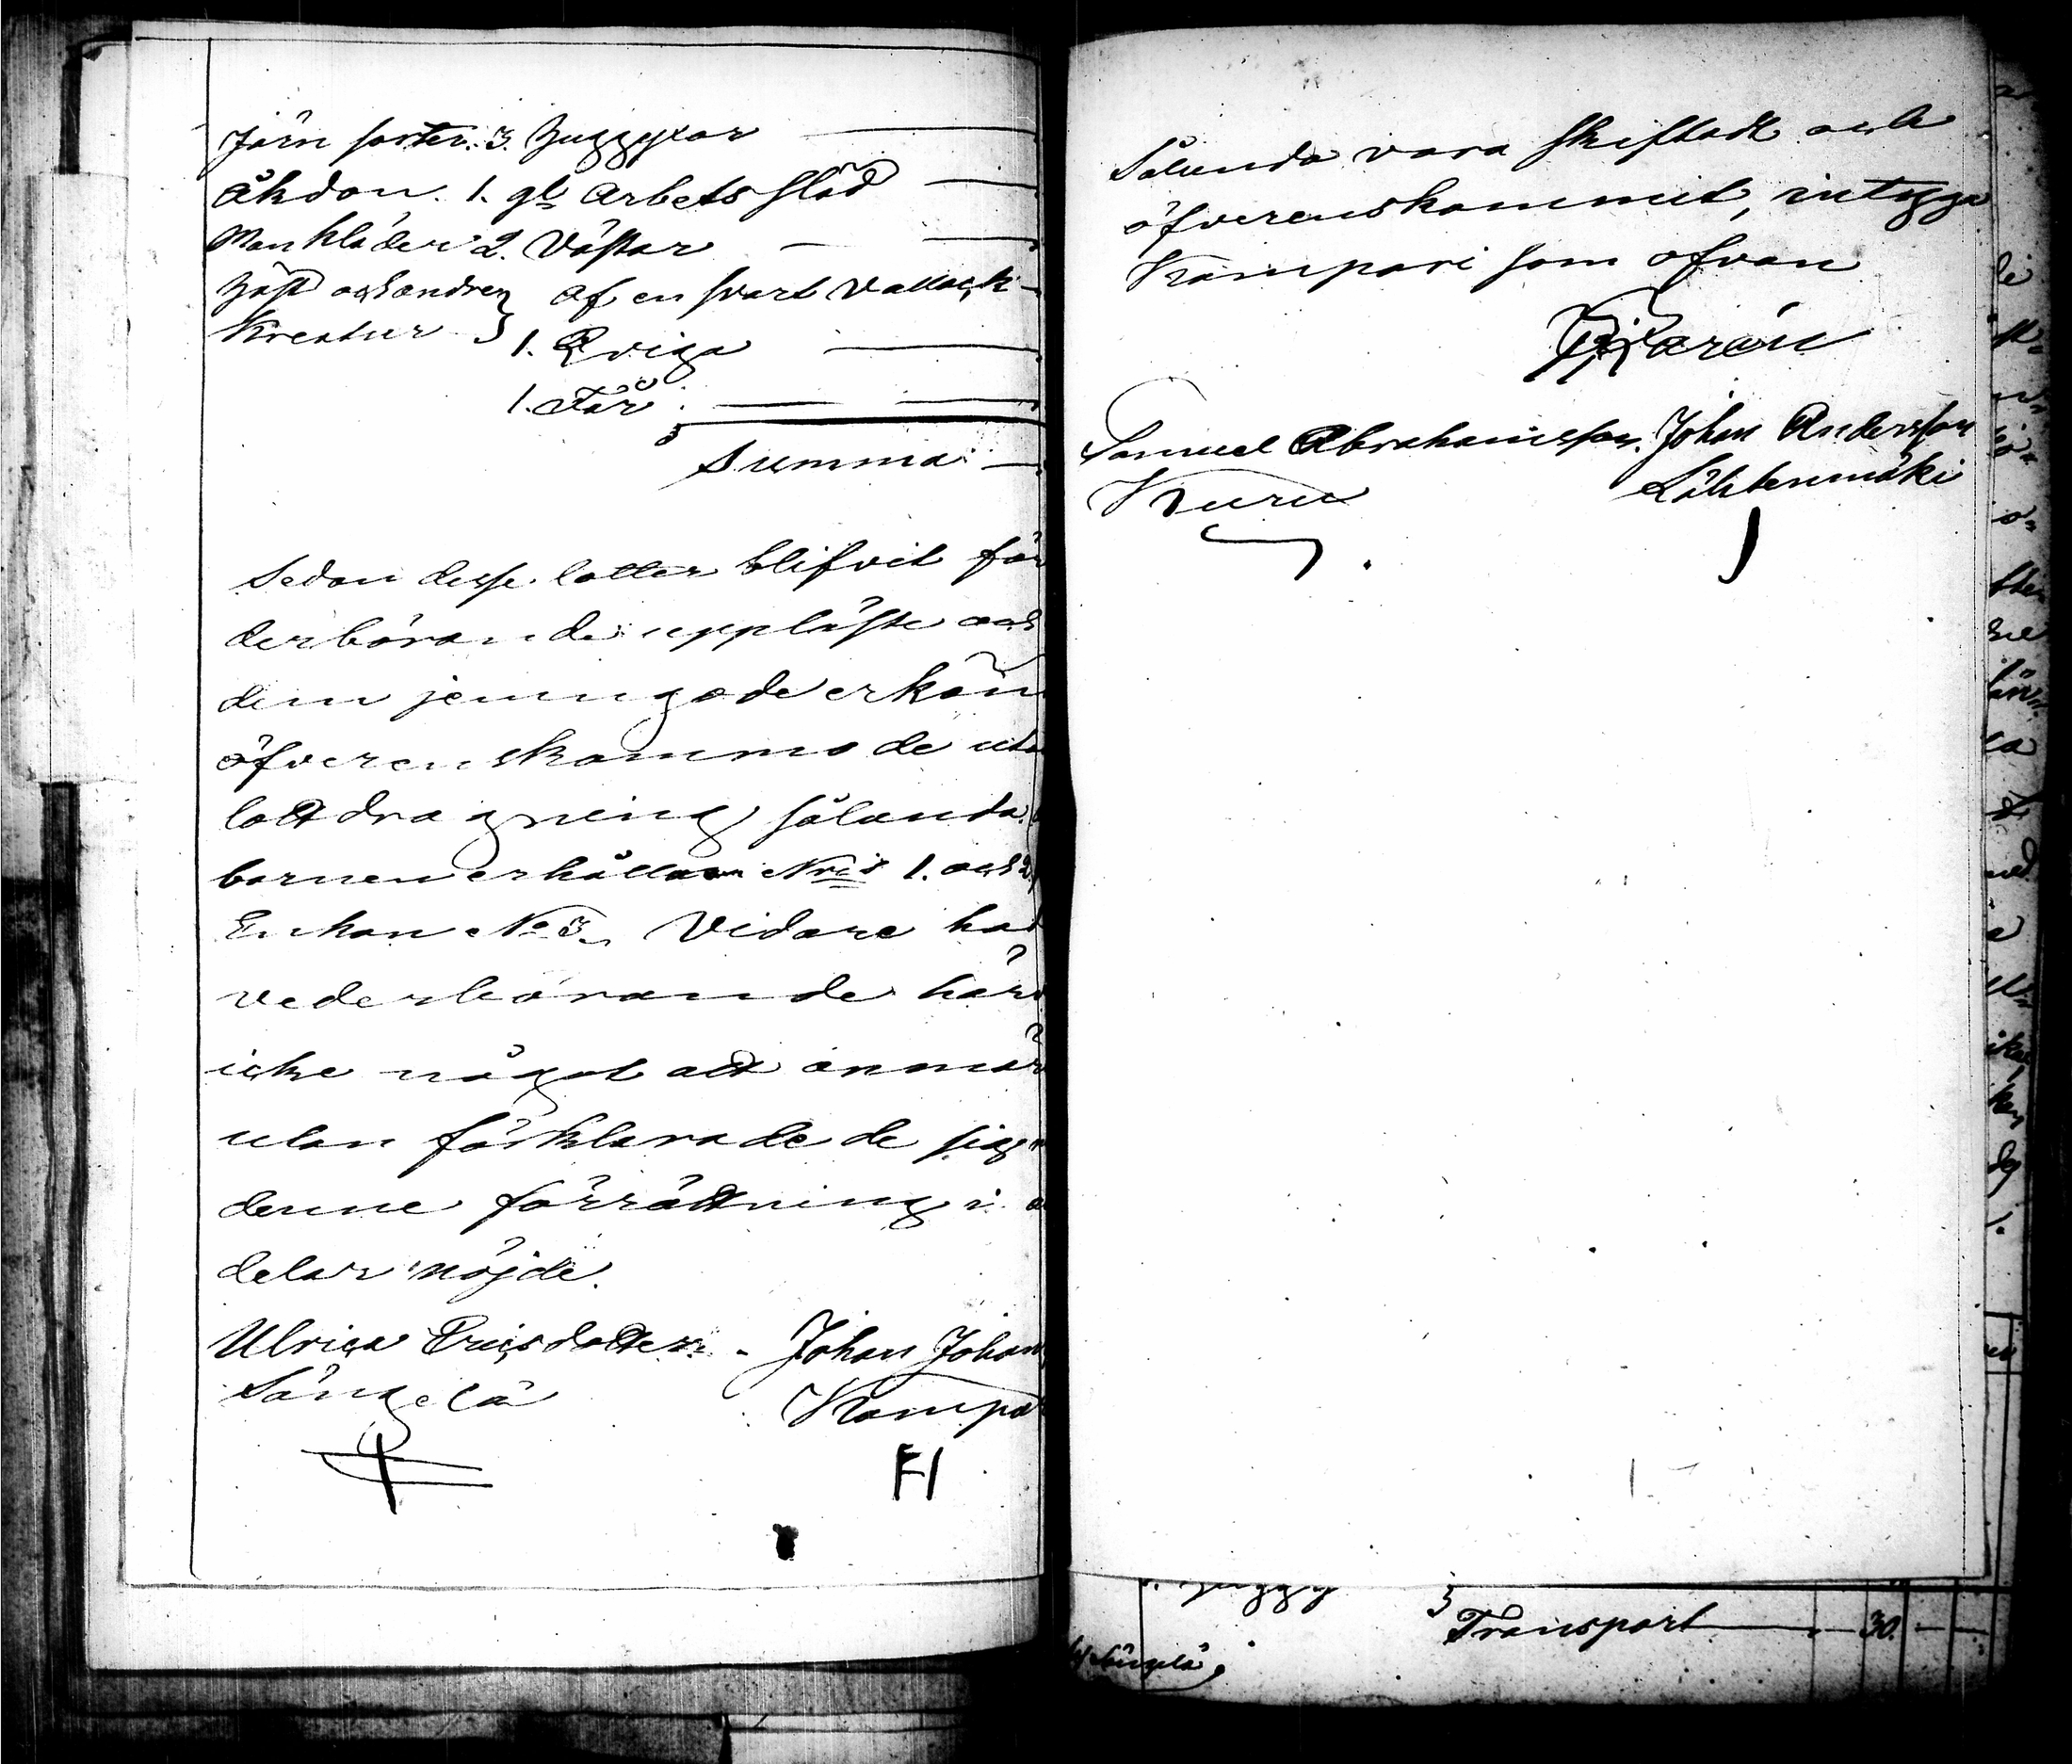 Järn sorter. 3. Huggyxor
Åkdon. 1. gl. arbets släd
Mankläder 2. Västar
Häst och andra Af en svart vallack
Kreatur 1. Qviga
1. Får
Summa
Sedan desse lotter blifvit för
derbörande uppläste och
dem jemngode erkän
öfverenskommo de uta
lottdragning sålunda
barnen erhålla Nris 1. och 2.
Enkan No 3. Vidare had
vederbörande här
icke något att anmär
utan förklarade de sig
denne förrättning i a
delar nöjde.
Ulrica Ericsdotter Johan Johan
Längelä Kampa
FI
Sålunda vara skiftadt och
öfverenskommit, intyga
Kampari som ofvan
Samuel Abrahamsson. Johan Andersson
Kuru Lähtenmäki
Transport 30.